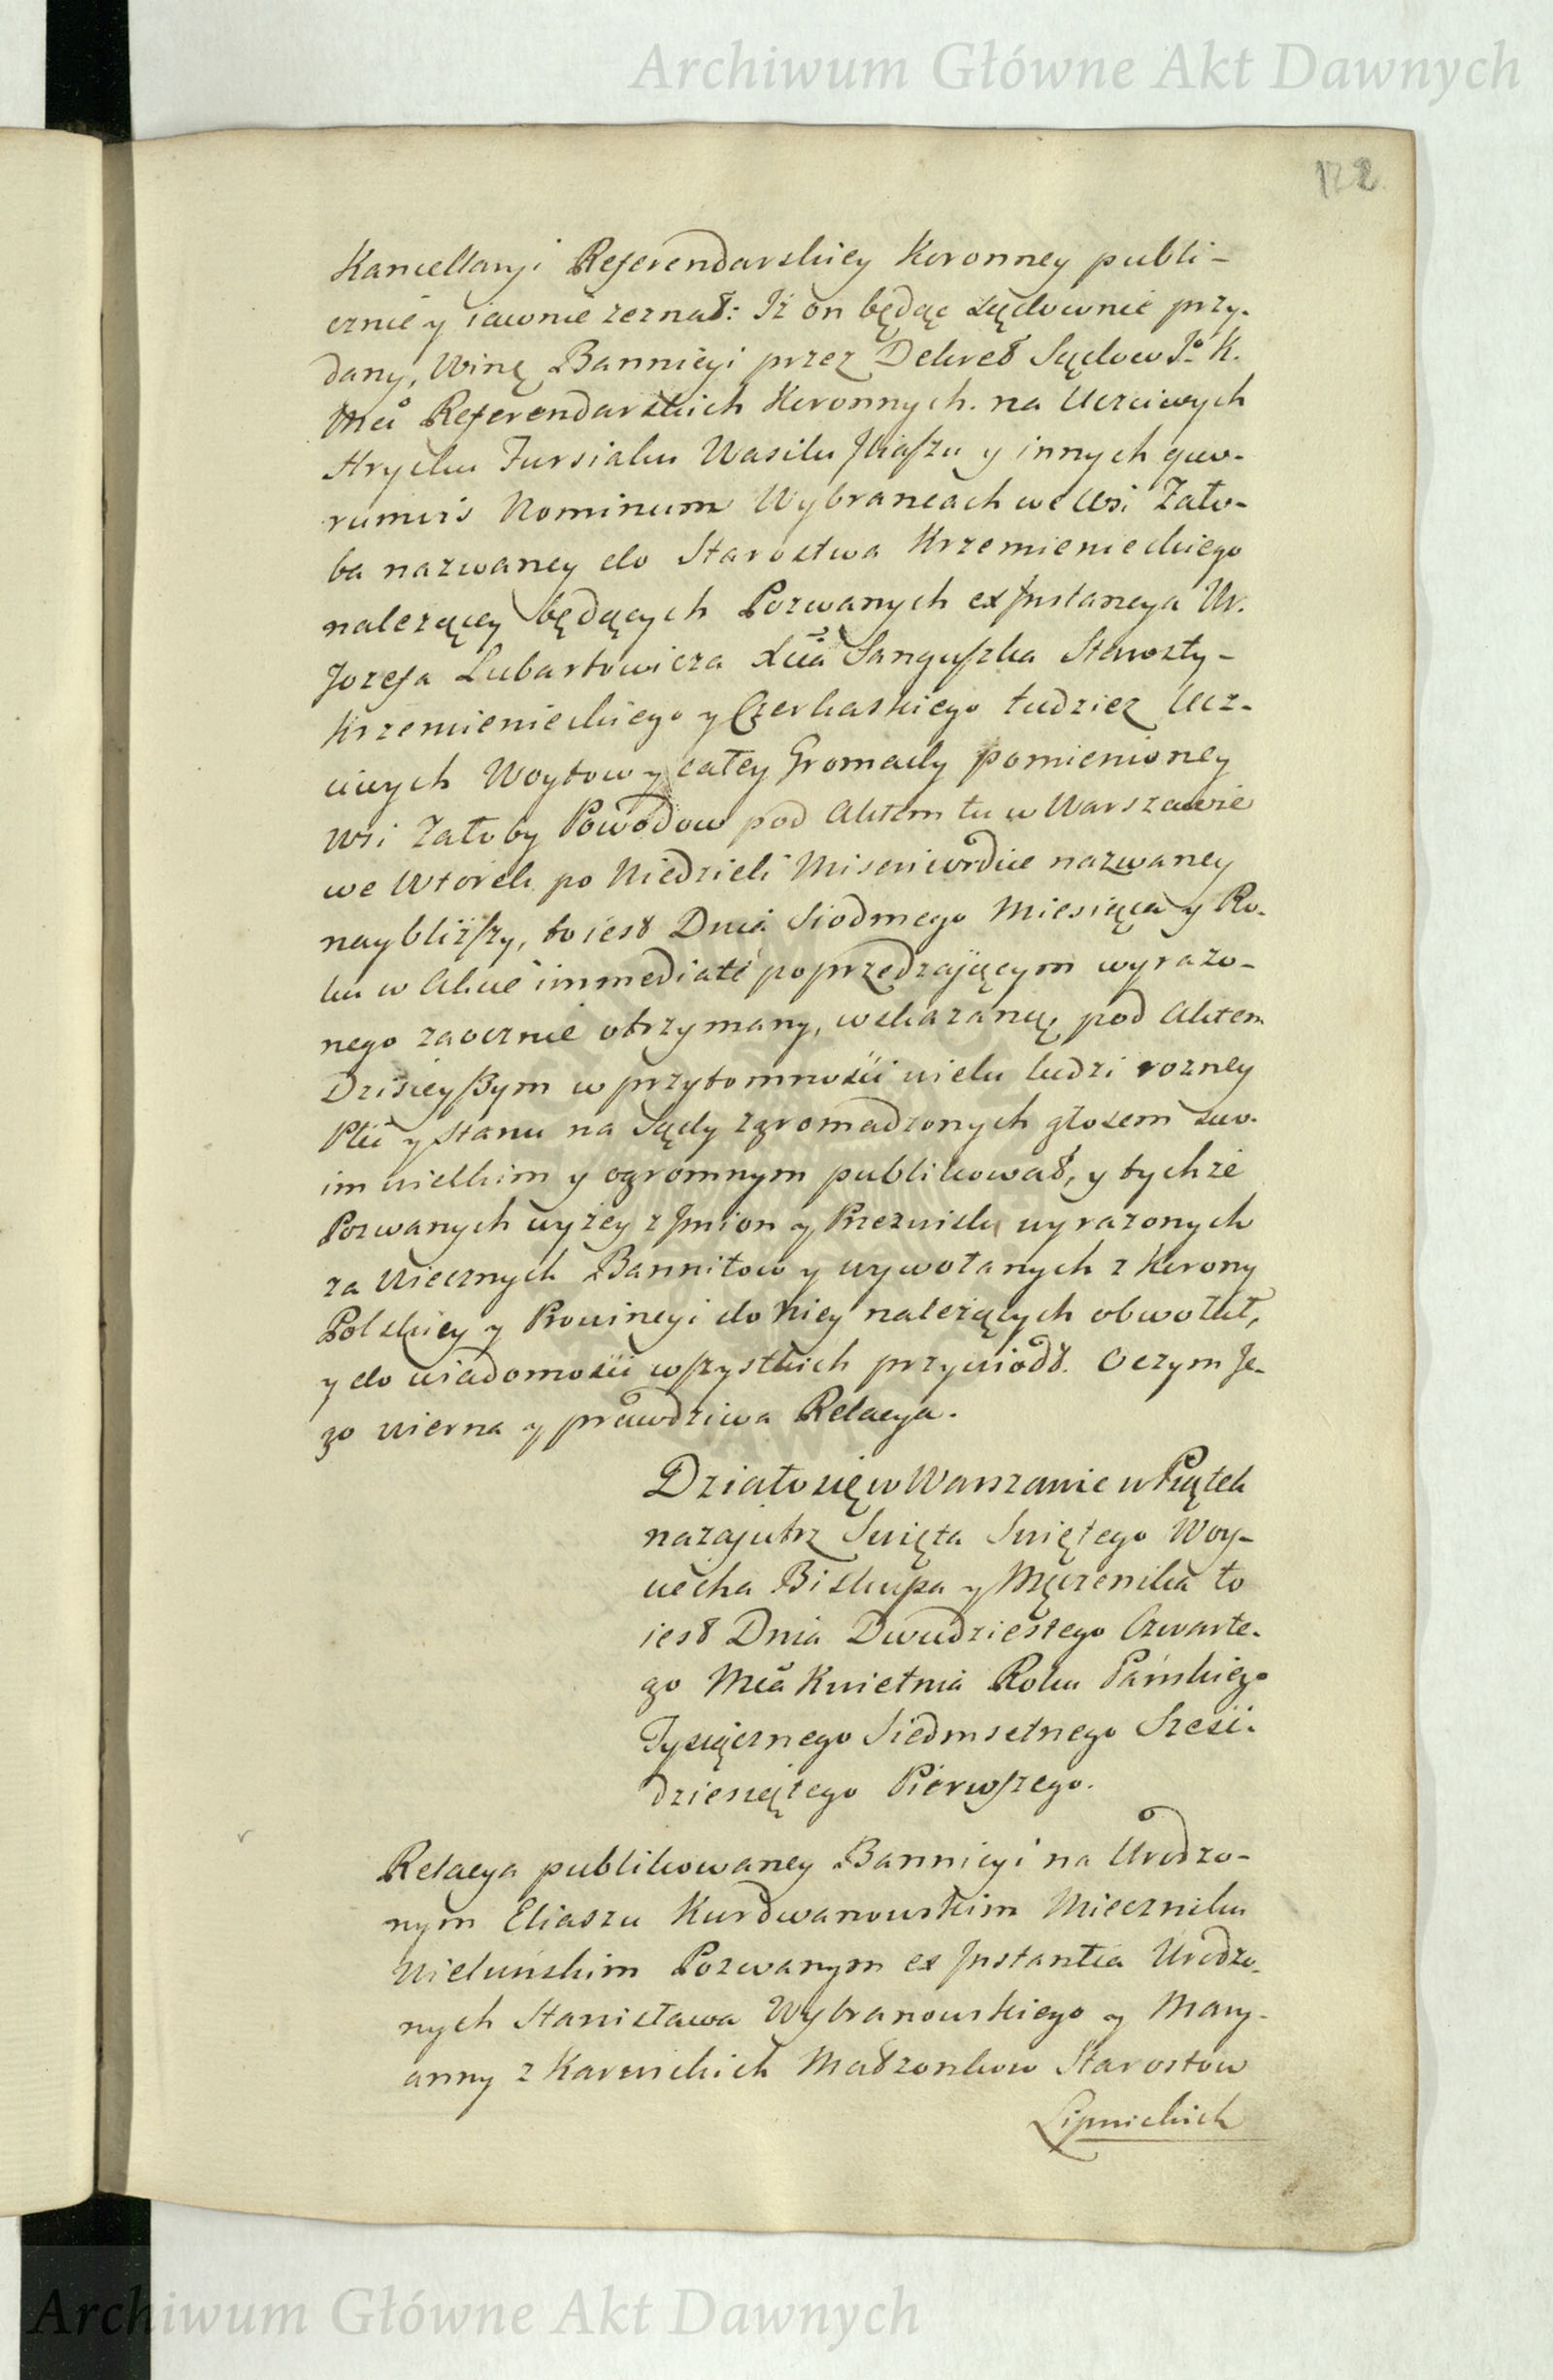 Archiwum Główne Akt Dawnych
122
Kancellaryi Referendarskiey Koronney publi-
cznie y iawnie zeznał: Iż on będąc sądownie przy-
dany, Winę Bannicyi przez Dekret Sądow Jº K.
Mci Referendarskich Koronnych na Uczciwych
Hryćku Fursiaku Wasilu Iliaszu y innych quo-
rumvis Nominum Wybrancach we Wsi Zało-
ba nazwaney do Starostwa Krzemienieckiego
należącey będących Pozwanych ex Instancya Ur.
Jozefa Lubartowicza Xcia Sanguszka Starosty
Krzemienieckiego y Czerkaskiego tudziez Ucz-
ciwych Woytow y całey Gromady pomienioney
Wsi Załoby Powodow pod Aktem tu w Warszawie
we Wtorek po Niedzieli Misericordiae nazwaney
naybliższy, to iest Dnia Siodmego Miesiąca y Ro-
ku w Akcie immediate poprzedzającym wyrażo-
nego zaocznie otrzymany, wskazaną, pod Aktem
Dzisieyszym w przytomności wielu ludzi rozney
Płci y Stanu na Sądy zgromadzonych głosem swo-
im wielkim y ogromnym publikował, y tychże
Pozwanych wyżey z Imion y Przezwisk wyrażonych
za Wiecznych Bannitow y wywołanych z Korony
Polskiey y Prowincyi do Niey należących obwołał,
y do wiadomości wszystkich przywiodł. O czym Je-
go wierna y prawdziwa Relacya.
Działo się w Warszawie w Piątek
nazajutrz Swięta Swiętego Woy-
ciecha Biskupa y Męczenika to
iest Dnia Dwudziestego Czwarte-
go Mca Kwietnia Roku Pańskiego
Tysiącznego Siedmsetnego Sześć-
dziesiątego Pierwszego.
Relacya publikowaney Bannicyi na Urodzo-
nym Eliaszu Kurdwanowskim Mieczniku
Wieluńskim Pozwanym ex Instantia Urodzo-
nych Stanisława Wybranowskiego y Mary-
anny z Karsnickich Małzonkow Starostow
Lipnickich
Archiwum Główne Akt Dawnych